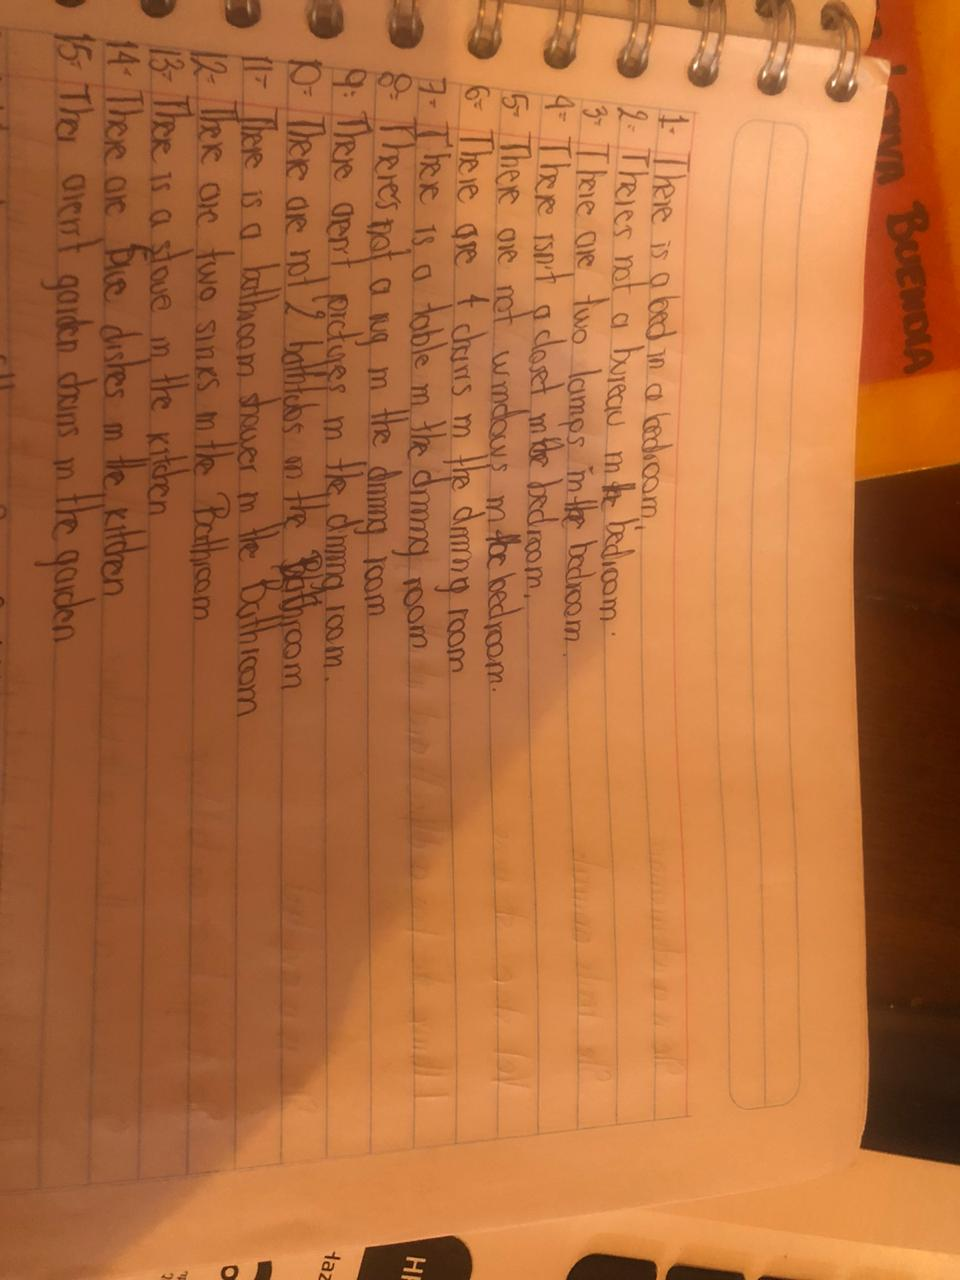 1- There is a bed in a bedroom.
2- Theres not a bureau in the bedroom.
3- There are two lamps in the bedroom.
4- There isn't a closet in the bedroom.
5- There are not windows in the bedroom.
6- There are 4 chairs in the dining room
7- There is a table in the dining room
8- Theres not a rug in the dining room
9- There aren't pictures in the dining room.
10- There are not 2 bathtubs in the Bathroom
11- There is a bathroom shower in the Bathroom
12- There are two sinks in the Bathroom
13- There is a stove in the kitchen
14- There are five dishes in the kitchen
15- Ther aren't garden chairs in the garden
BUENDIA